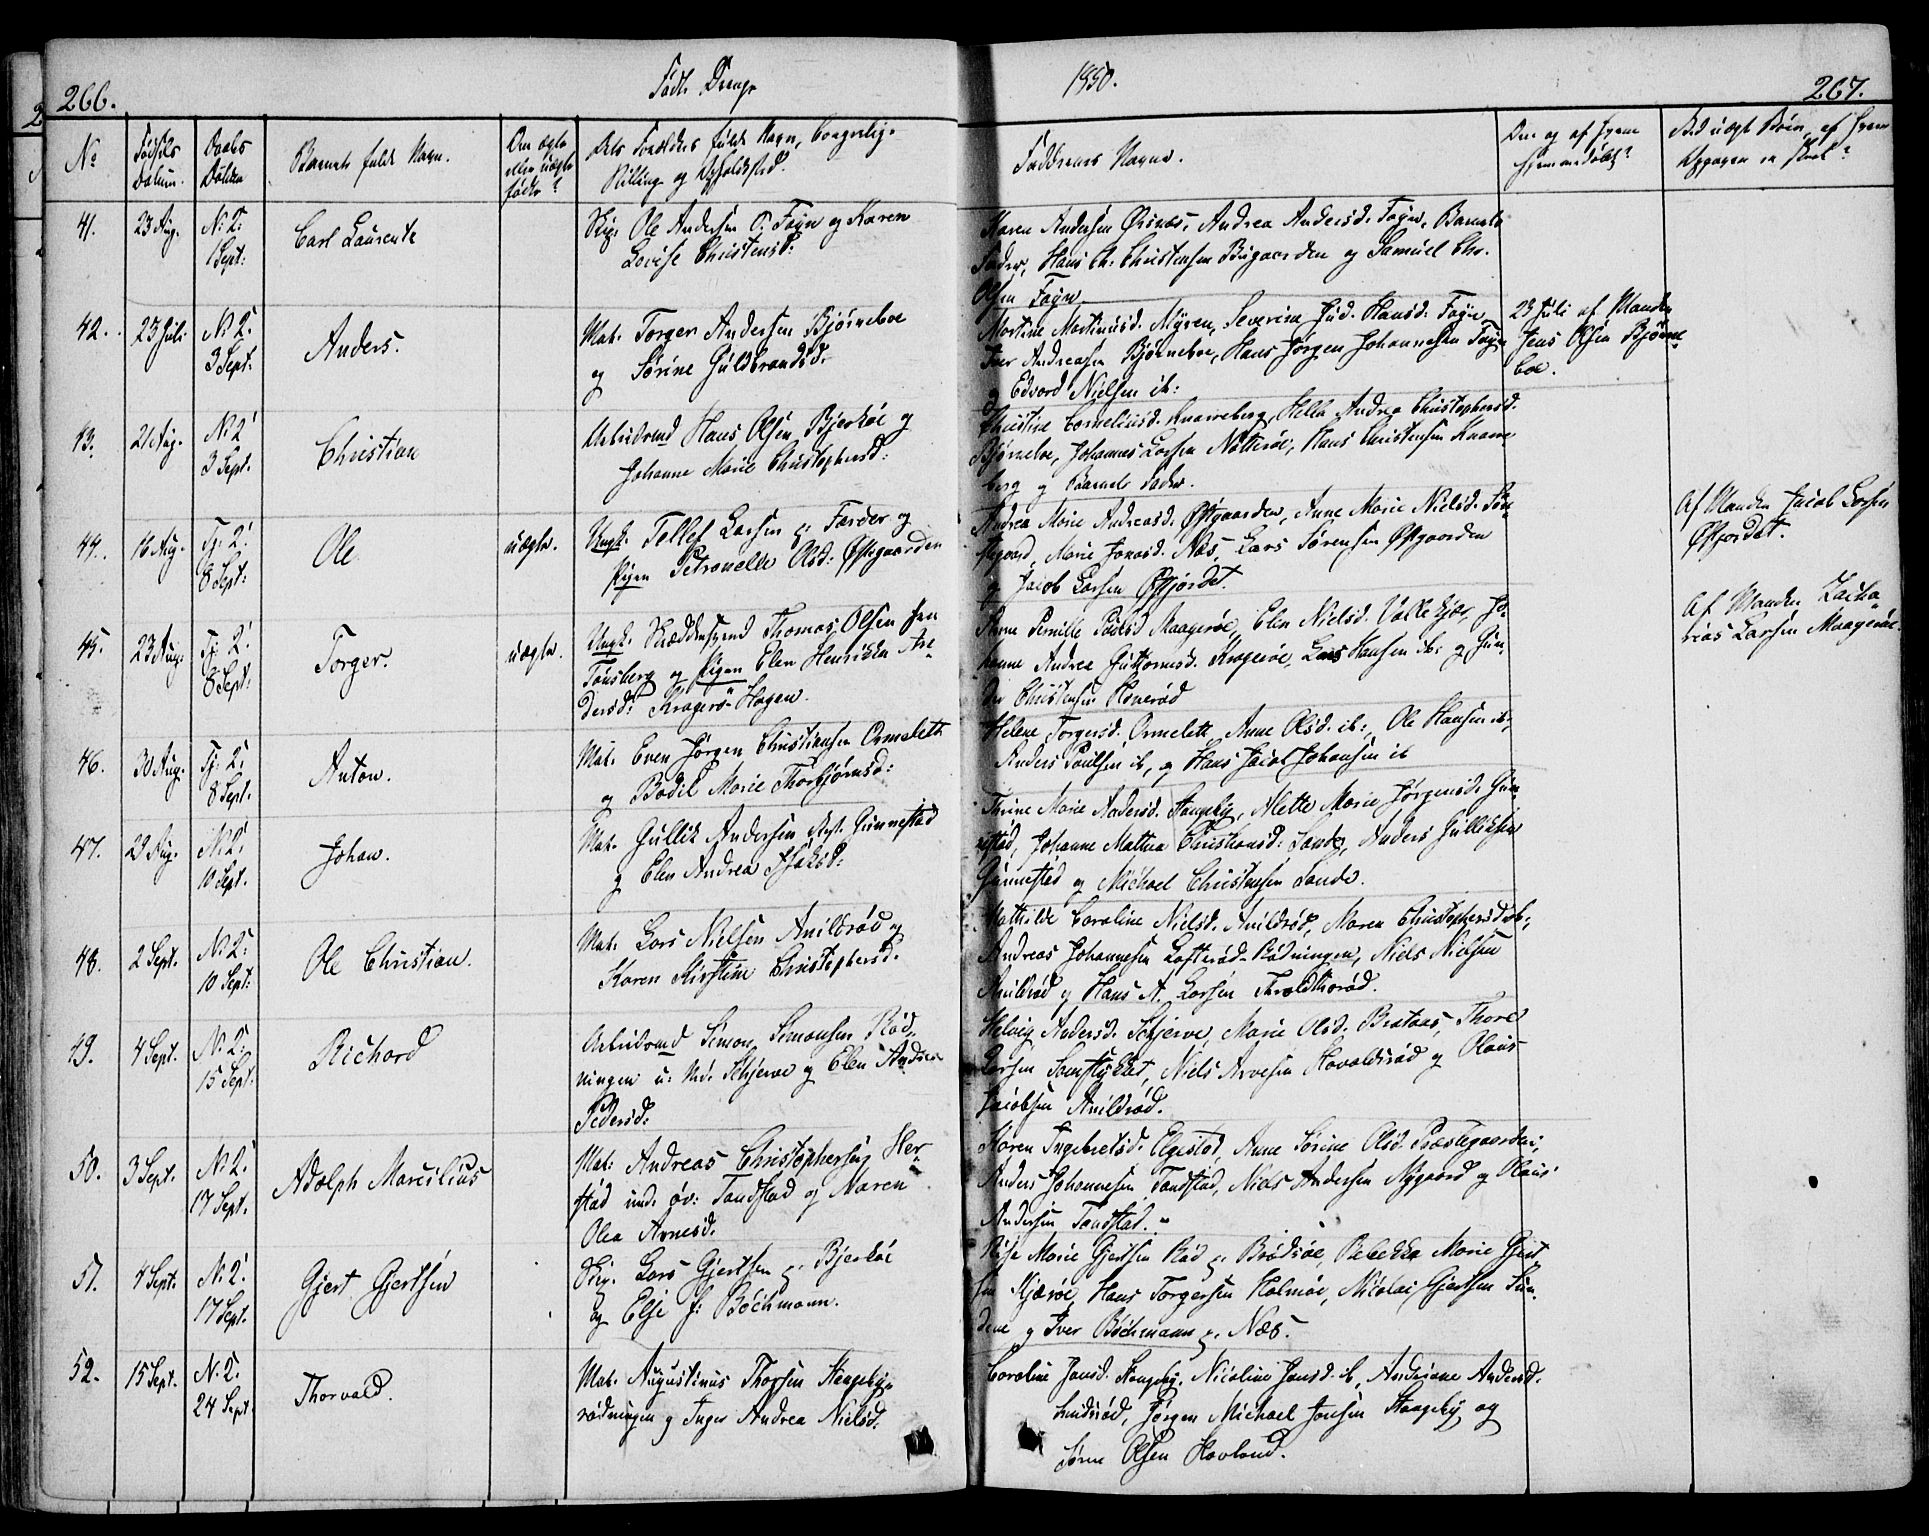 266.
Født Drenge
1850.
267.
No
Fødsels Datum.
Daabs Datum
Barnets fulde Navn.
Om ægte eller uægte født?
Dets Forældres fulde Navn, Borgerlig-
Stilling og Opholdssted.
Faddernes Navne.
Om og af hvem hjemmedøbt?
Ved uægt Børn, af hvem Opgaven er skeet?
41.
23 Aug.
N: 2:
1 Sept:
Carl Laurentz
Ole Andersen Føyn og Karen
Lovise Christensd:
Karen Andersen Ørsnæs, Andrea Andersd. Føyn, Barnets
Fader, Hans Ch. Christensen Bugaarden og Samuel Chr.
Olsen Føyn.
42.
23 Juli
N: 2:
3 Sept:
Anders.
Mat. Torger Andersen Bjørneboe
og Sørine Guldbrandsd.
Martine Martinusd. Myren, Severine Jud. Hansd. Føyn,
Iver Andreasen Bjørneboe, Hans Jørgen Johannesen Føyn
og Edvard Nielsen ib:
23 Juli af Manden
Jens Olsen Bjørne-
boe.
43.
21 Aug.
N: 2:
3 Sept.
Christian
Arbeidsmd Hans Olsen Bjerkøe og
Johanne Marie Christophersd:
Christine Corneliusd. Knarreberg, Helle Andrea Christophersd.
Bjørneboe, Johannes Larsen Nøtterøe, Hans Christensen Knarre
berg og Barnets Fader.
44.
16 Aug.
Tj: 2:
8 Sept:
Ole
uægte.
Ungk: Tellef Larsen p: Færder og
Pigen Petronelle Olsd: Østgaarden
Andrea Marie Andreasd. Østgaarden, Anne Marie Nielsd.
Marie Jonasd. Næs, Lars Sørensen Østgaarden
og Jacob Larsen Øfjordet.
Af Manden Jacob Larsen
Øfjordet.
45.
23 Aug.
Tj: 2:
8 Sept:
Torger.
uægte.
Ungk. Thomas Olsen fra
Tønsberg og Pigen Elen Henrikke An-
dersd: Kragerø Hagen.
Anne Pernille Paulsd Maagerøe, Elen Nielsd. Vallekjær, Jo-
hanne Andrea Guttormsd. Kragerøe, Lars Hansen ib: og Gun-
der Christensen
Af Manden Zacha-
rias Larsen Maagerøe.
46.
30 Aug.
Tj: 2:
8 Sept.
Anton.
Mat. Even Jørgen Christiansen Ormelett
og Bodil Marie Thorbjørnsd:
Helene Torgersd. Ormelett, Anne Olsd. ib:, Ole Hansen ib,
Anders Paulsen ib, og Hans Jacob Johansen ib
47.
29 Aug.
N: 2:
10 Sept.
Johan.
Mat. Gullik Andersen Gunnestad
og Elen Andrea Isaksd:
Thrine Marie Andersd. Stangeby, Mette Marie Jørgensd. Gun-
nestad, Johanne Mathea Christiansd: Sande, Anders Gulliksen
Gunnestad og Michael Christensen Sande.
48.
2 Sept.
N: 2:
10 Sept:
Ole Christian.
Mat. Lars Nielsen Arildrød og
Karen Kirstine Christophersd.
Mathilde Caroline Nielsd. Arildrød, Maren Christophersd. ib,
Andreas Johannesen Lofterød-Rødningen, Niels Nielsen
Arildrød og Hans A. Larsen
49.
4 Sept.
N: 2:
15 Sept.
Richard
Arbeidsmd Simon Simonsen Rød-
ningen u: Skjerve og Elen Andrea
Pedersd:
Helvig Andersd. Skjerve, Marie Olsd. Brataas, Thore
Larsen Niels Arvesen Hovaldsrød og Olaus
Jacobsen Arildrød.
50.
3 Sept.
N: 2:
17 Sept.
Adolph Marcilius
Mat: Andreas Christophersen Her-
stad und. øv: Tandstad og Karen
Olea Arnesd.
Karen Ingebretsd. Elgestad, Anne Sørine Olsd. Præstegaarden,
Anders Johannesen Tandstad, Niels Andersen Nygaard og Olaus
Andersen Tandstad.
51.
4 Sept:
N: 2:
17 Sept.
Gjert Gjertsen
Lars Gjertsen p. Bjerkøe
og Else f: Bøchmann.
Marie Gjertsen Rød p. Brødrøe, Rebekka Marie Gjert
sen Kjærøe, Hans Torgersen Holmøe, Nicolai Gjertsen Sun-
dene og Iver Bøchmann p. Næs.
52.
15 Sept.
N. 2.
24 Sept.
Thorvald.
Mat. Augustinus Thorsen Stangeby-
rødningen og Inger Andrea Nielsd.
Caroline Jansd. Stangeby, Nicoline Jansd. ib, Andriane Andersd.
Lindsrød, Jørgen Michael Jonsen Stangeby og
Søren Olsen Hovland.